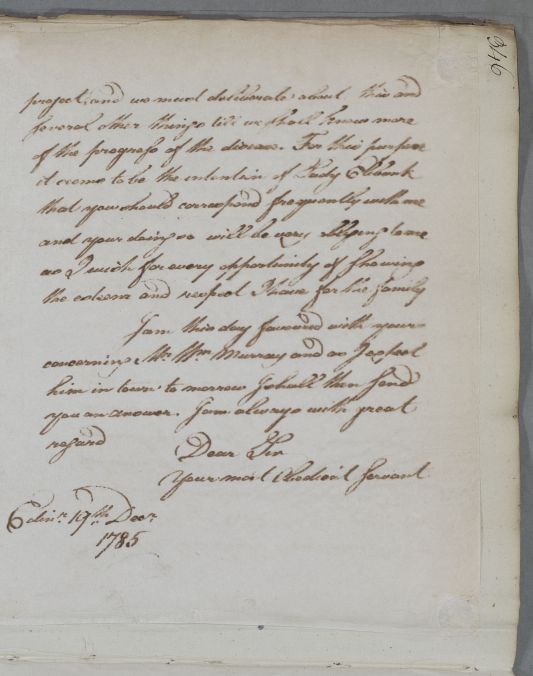 346
project, and we must deliberate about this and
several other things till we shall know more
of the progress of the disease. For this purpose
it seems to be the intention of Lady Elibank
that you should correspond frequently with me
and your doing so will be very obliging to me
as I wish for every opportunity of showing
the esteem and respect I have for his family
I am this day favoured with yours
concerning Mr. Wm Murray and as I expect
him in town to morrow I shall then send
you an answer. I am always with great
regard
Dear Sir
Your most Obedient Servant
Edinr. 19th Decr.
1785